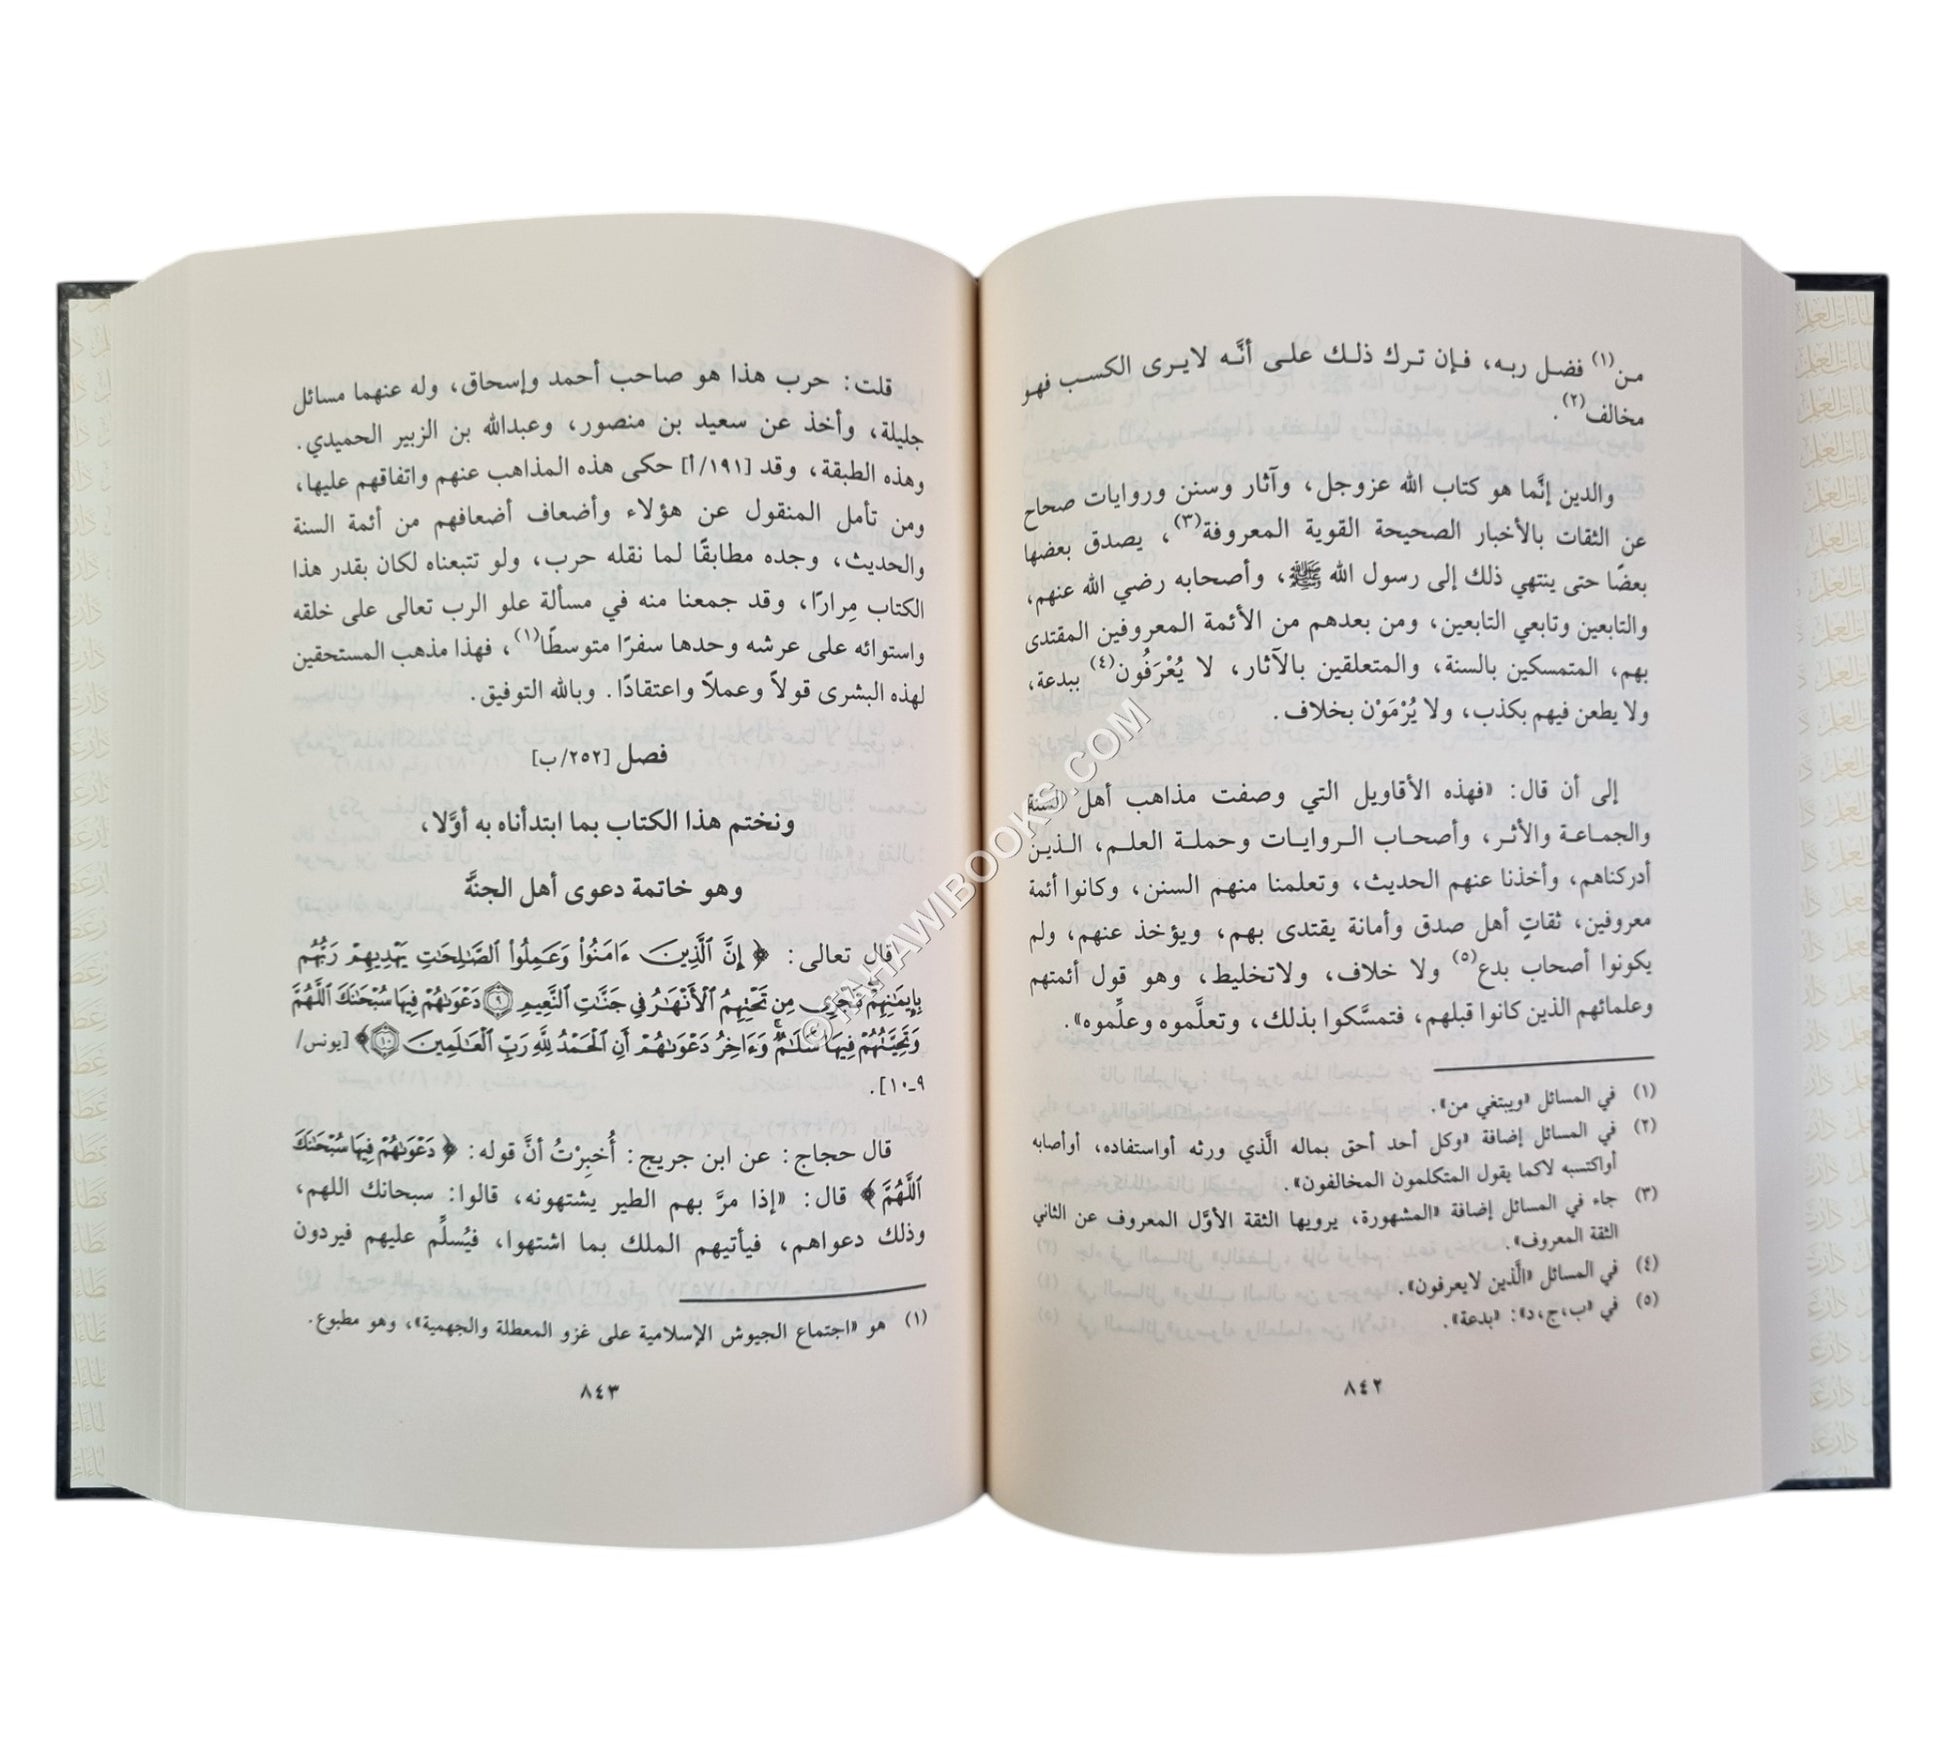 من(١) فضل ربه، فإن ترك ذلك على أنَّه لايرى الكسب فهو
مخالف(٢).
والدين إنَّما هو كتاب الله عزوجل، وآثار وسنن وروايات صحاح
عن الثقات بالأخبار الصحيحة القوية المعروفة(٣)، يصدق بعضها
بعضًا حتى ينتهي ذلك إلى رسول الله ﷺ، وأصحابه رضي الله عنهم،
والتابعين وتابعي التابعين، ومن بعدهم من الأئمة المعروفين المقتدى
بهم، المتمسكين بالسنة، والمتعلقين بالآثار، لا يُعْرَفُون(٤) ببدعة،
ولا يطعن فيهم بكذب، ولا يُرْمَوْن بخلاف.
إلى أن قال: «فهذه الأقاويل التي وصفت مذاهب أهل السنة
والجماعة والأثر، وأصحاب الروايات وحملة العلم، الذين
أدركناهم، وأخذنا عنهم الحديث، وتعلمنا منهم السنن، وكانوا أئمة
معروفين، ثقاتٍ أهل صدق وأمانة يقتدى بهم، ويؤخذ عنهم، ولم
يكونوا أصحاب بدع(٥) ولا خلاف، ولاتخليط، وهو قول أئمتهم
وعلمائهم الذين كانوا قبلهم، فتمسَّكوا بذلك، وتعلَّموه وعلِّموه».
(١) في المسائل «ويبتغي من».
(٢) في المسائل إضافة «وكل أحد أحق بماله الَّذي ورثه أواستفاده، أوأصابه
أواكتسبه لاكما يقول المتكلمون المخالفون».
(٣) جاء في المسائل إضافة «المشهورة، يرويها الثقة الأوَّل المعروف عن الثاني
الثقة المعروف».
(٤) في المسائل «الَّذين لايعرفون».
(٥) في «ب،ج،د»: «بدعة».
٨٤٢
قلت: حرب هذا هو صاحب أحمد وإسحاق، وله عنهما مسائل
جليلة، وأخذ عن سعيد بن منصور، وعبدالله بن الزبير الحميدي.
وهذه الطبقة، وقد [١٩١/أ] حكى هذه المذاهب عنهم واتفاقهم عليها،
ومن تأمل المنقول عن هؤلاء وأضعاف أضعافهم من أئمة السنة
والحديث، وجده مطابقًا لما نقله حرب، ولو تتبعناه لكان بقدر هذا
الكتاب مِرارًا، وقد جمعنا منه في مسألة علو الرب تعالى على خلقه
واستوائه على عرشه وحدها سفرًا متوسطًا(١)، فهذا مذهب المستحقين
لهذه البشرى قولاً وعملاً واعتقادًا. وبالله التوفيق.
فصل [٢٥٢/ب]
ونختم هذا الكتاب بما ابتدأناه به أوَّلا،
وهو خاتمة دعوى أهل الجنَّة
قال تعالى: ﴿إِنَّ ٱلَّذِينَ ءَامَنُوا۟ وَعَمِلُوا۟ ٱلصَّـٰلِحَـٰتِ يَهْدِيهِمْ رَبُّهُم
بِإِيمَـٰنِهِمْ تَجْرِى مِن تَحْتِهِمُ ٱلْأَنْهَـٰرُ فِى جَنَّـٰتِ ٱلنَّعِيمِ ٩ دَعْوَىٰهُمْ فِيهَا سُبْحَـٰنَكَ ٱللَّهُمَّ
وَتَحِيَّتُهُمْ فِيهَا سَلَـٰمٌ وَءَاخِرُ دَعْوَىٰهُمْ أَنِ ٱلْحَمْدُ لِلَّهِ رَبِّ ٱلْعَـٰلَمِينَ ١٠﴾ [يونس/
٩-١٠].
قال حجاج: عن ابن جريج: أُخبِرْتُ أنَّ قوله: ﴿دَعْوَىٰهُمْ فِيهَا سُبْحَـٰنَكَ
ٱللَّهُمَّ﴾ قال: «إذا مرَّ بهم الطير يشتهونه، قالوا: سبحانك اللهم،
وذلك دعواهم، فيأتيهم الملك بما اشتهوا، فيُسلِّم عليهم فيردون
(١) هو «اجتماع الجيوش الإسلامية على غزو المعطلة والجهمية»، وهو مطبوع.
٨٤٣
©TAHAWIBOOKS.COM